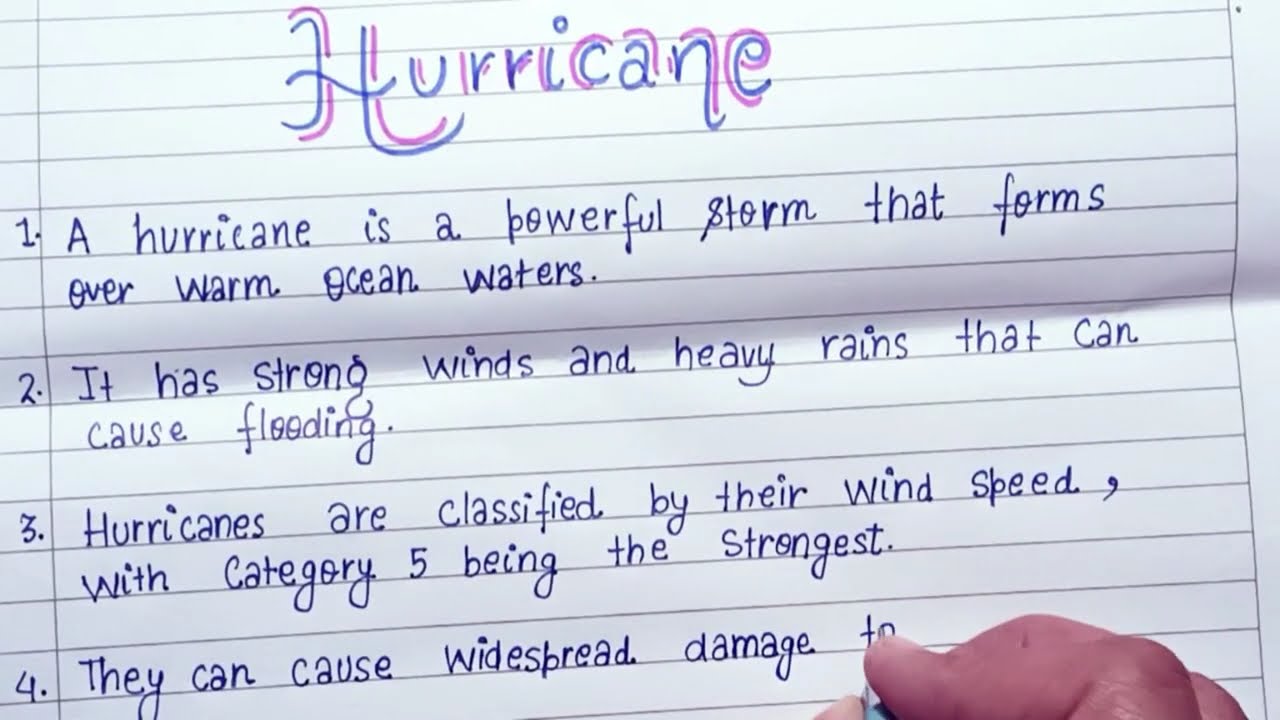 Hurricane
1. A hurricane is a powerful storm that forms
over warm ocean waters.
2. It has strong winds and heavy rains that can
cause flooding.
3. Hurricanes are classified by their wind speed,
with Category 5 being the strongest.
4. They can cause widespread damage to